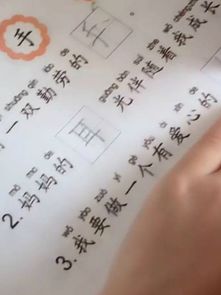 手
yì shuāng qín láo de
一双勤劳的手
mā ma de guāng bàn suí zhe
2. 妈妈的耳光伴随着我成长
wǒ yào zuò yí gè yǒu ài xīn de
3. 我要做一个有爱心的